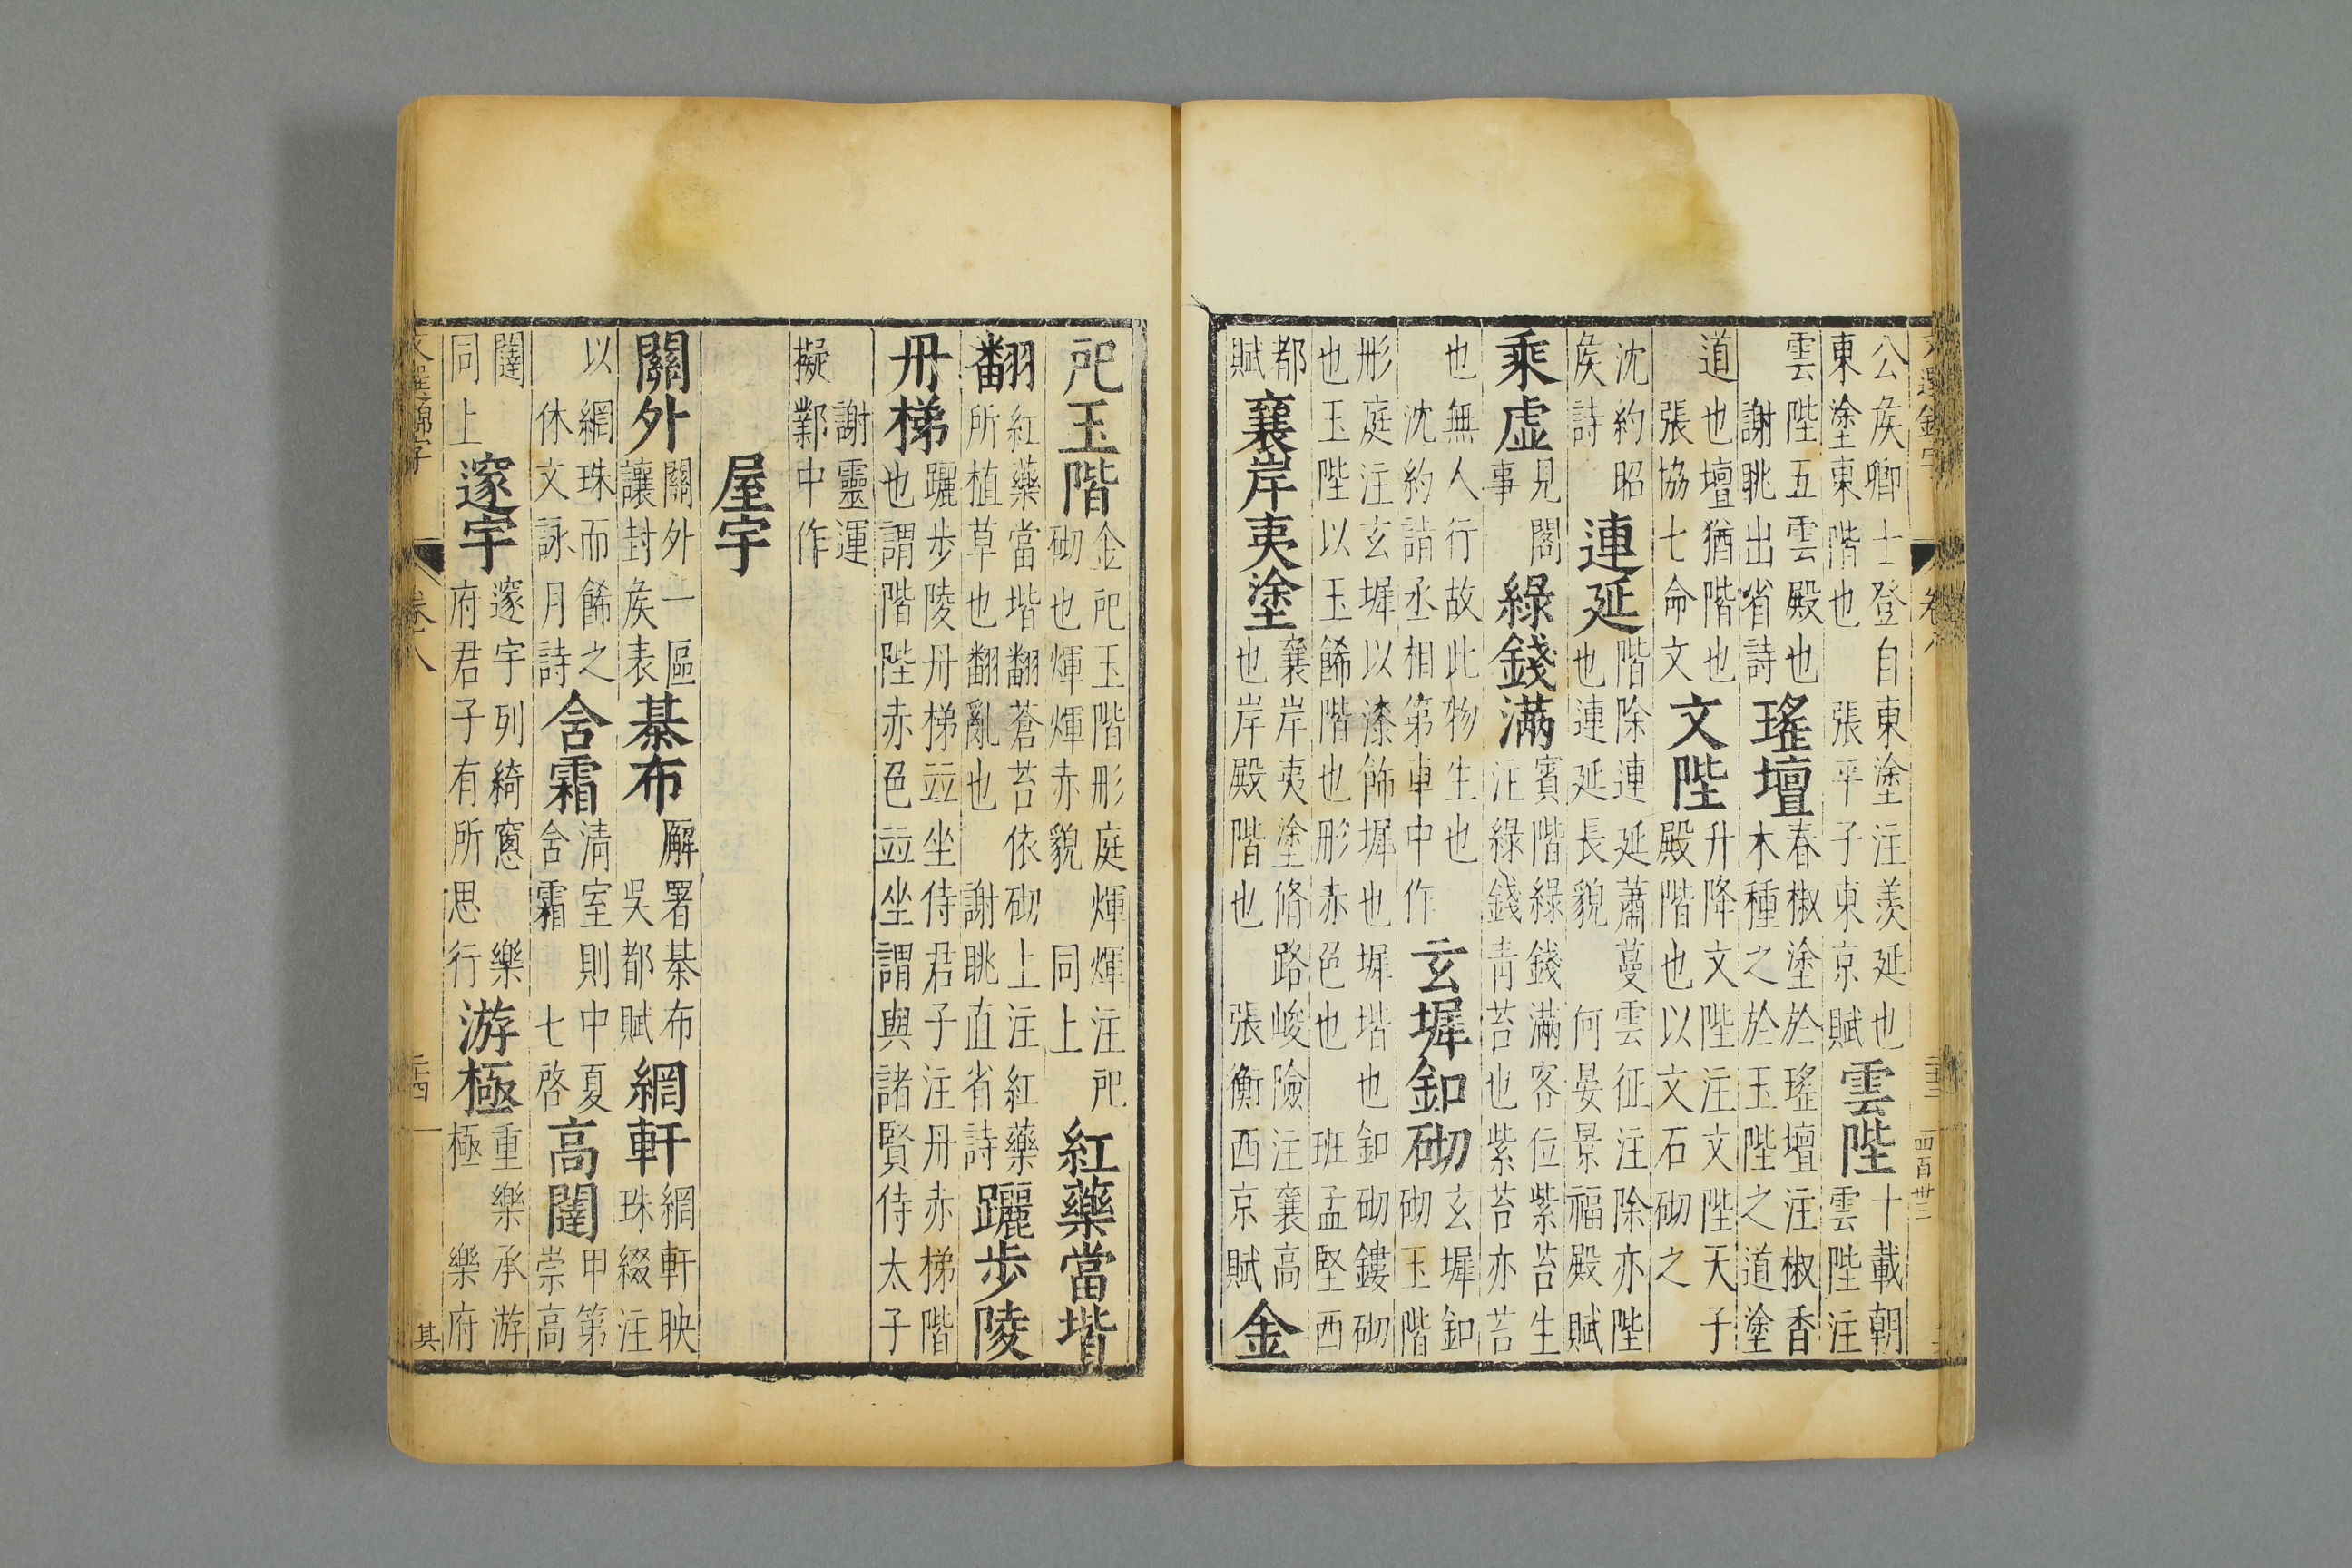 公矦卿士登自東塗注羨延也
東塗東階也 張平子東京賦
雲陛
十載朝
雲陛注
雲陛五雲殿也
謝眺出省詩
瑤壇
春椒塗於瑤壇注椒香
木種之於玉陛之道塗
道也壇猶階也
張協七命文
文陛
升降文陛注文陛天子
殿階也以文石砌之
沈約昭
矦詩
連延
階除連延蕭蔓雲征注除亦陛
也連延長貌 何晏景福殿賦
乘虛
見閣
事
綠錢滿
賓階綠錢滿客位紫苔生
注綠錢青苔也紫苔亦苔
也無人行故此物生也
沈約詣丞相第車中作
玄墀釦砌
玄墀釦
砌玉階
彤庭注玄墀以漆飾墀也墀堦也釦砌鏤砌
也玉陛以玉餙階也彤赤色也 班孟堅西
都
賦
襄岸夷塗
襄岸夷塗脩路峻險注襄高
也岸殿階也 張衡西京賦
金
戺玉階
金戺玉階彤庭煇煇注戺
砌也煇煇赤貌 同上
紅藥當堦
翻
紅藥當堦翻蒼苔依砌上注紅藥
所植草也翻亂也 謝眺直省詩
躧步陵
丹梯
躧步陵丹梯竝坐侍君子注丹赤梯階
也謂階陛赤色竝坐謂與諸賢侍太子
謝靈運
擬鄴中作
屋宇
闗外
闗外一區
讓封矦表
綦布
廨署綦布
吳都賦
網軒
網軒映
珠綴注
以網珠而餙之
休文詠月詩
含霜
清室則中夏
含霜 七啓
高闥
甲第
崇高
闥
同上
邃宇
邃宇列綺窻 樂
府君子有所思行
游極
重欒承游
極 樂府
卷八
其
四百卅三